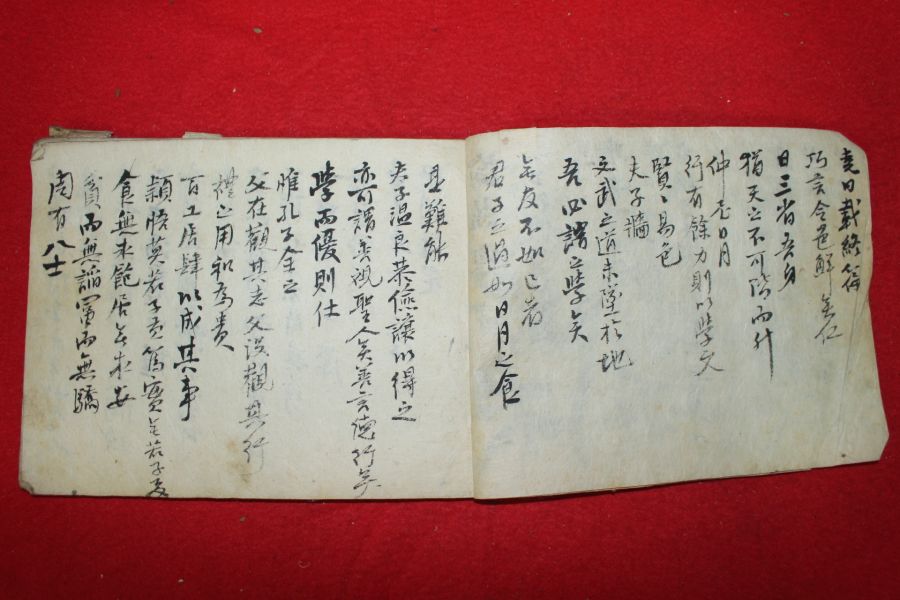 堯曰載経傳
巧言令色鮮矣仁
日三省吾身
猶天之不可階而升
仲尼日月
行有餘力則以學文
賢〻易色
夫子牆
文武之道未墜於地
吾必謂之學矣
無友不如己者
君子之過如日月之食
是難能
夫子温良恭儉讓以得之
亦可謂善視聖人矣善言德行矣
學而優則仕
惟孔子全之
父在觀其志父没觀其行
禮之用和爲貴
百工居肆以成其事
穎悟莫若子貢篤實無若子夏
食無求飽居無求安
貧而無諂富而無驕
周有八士